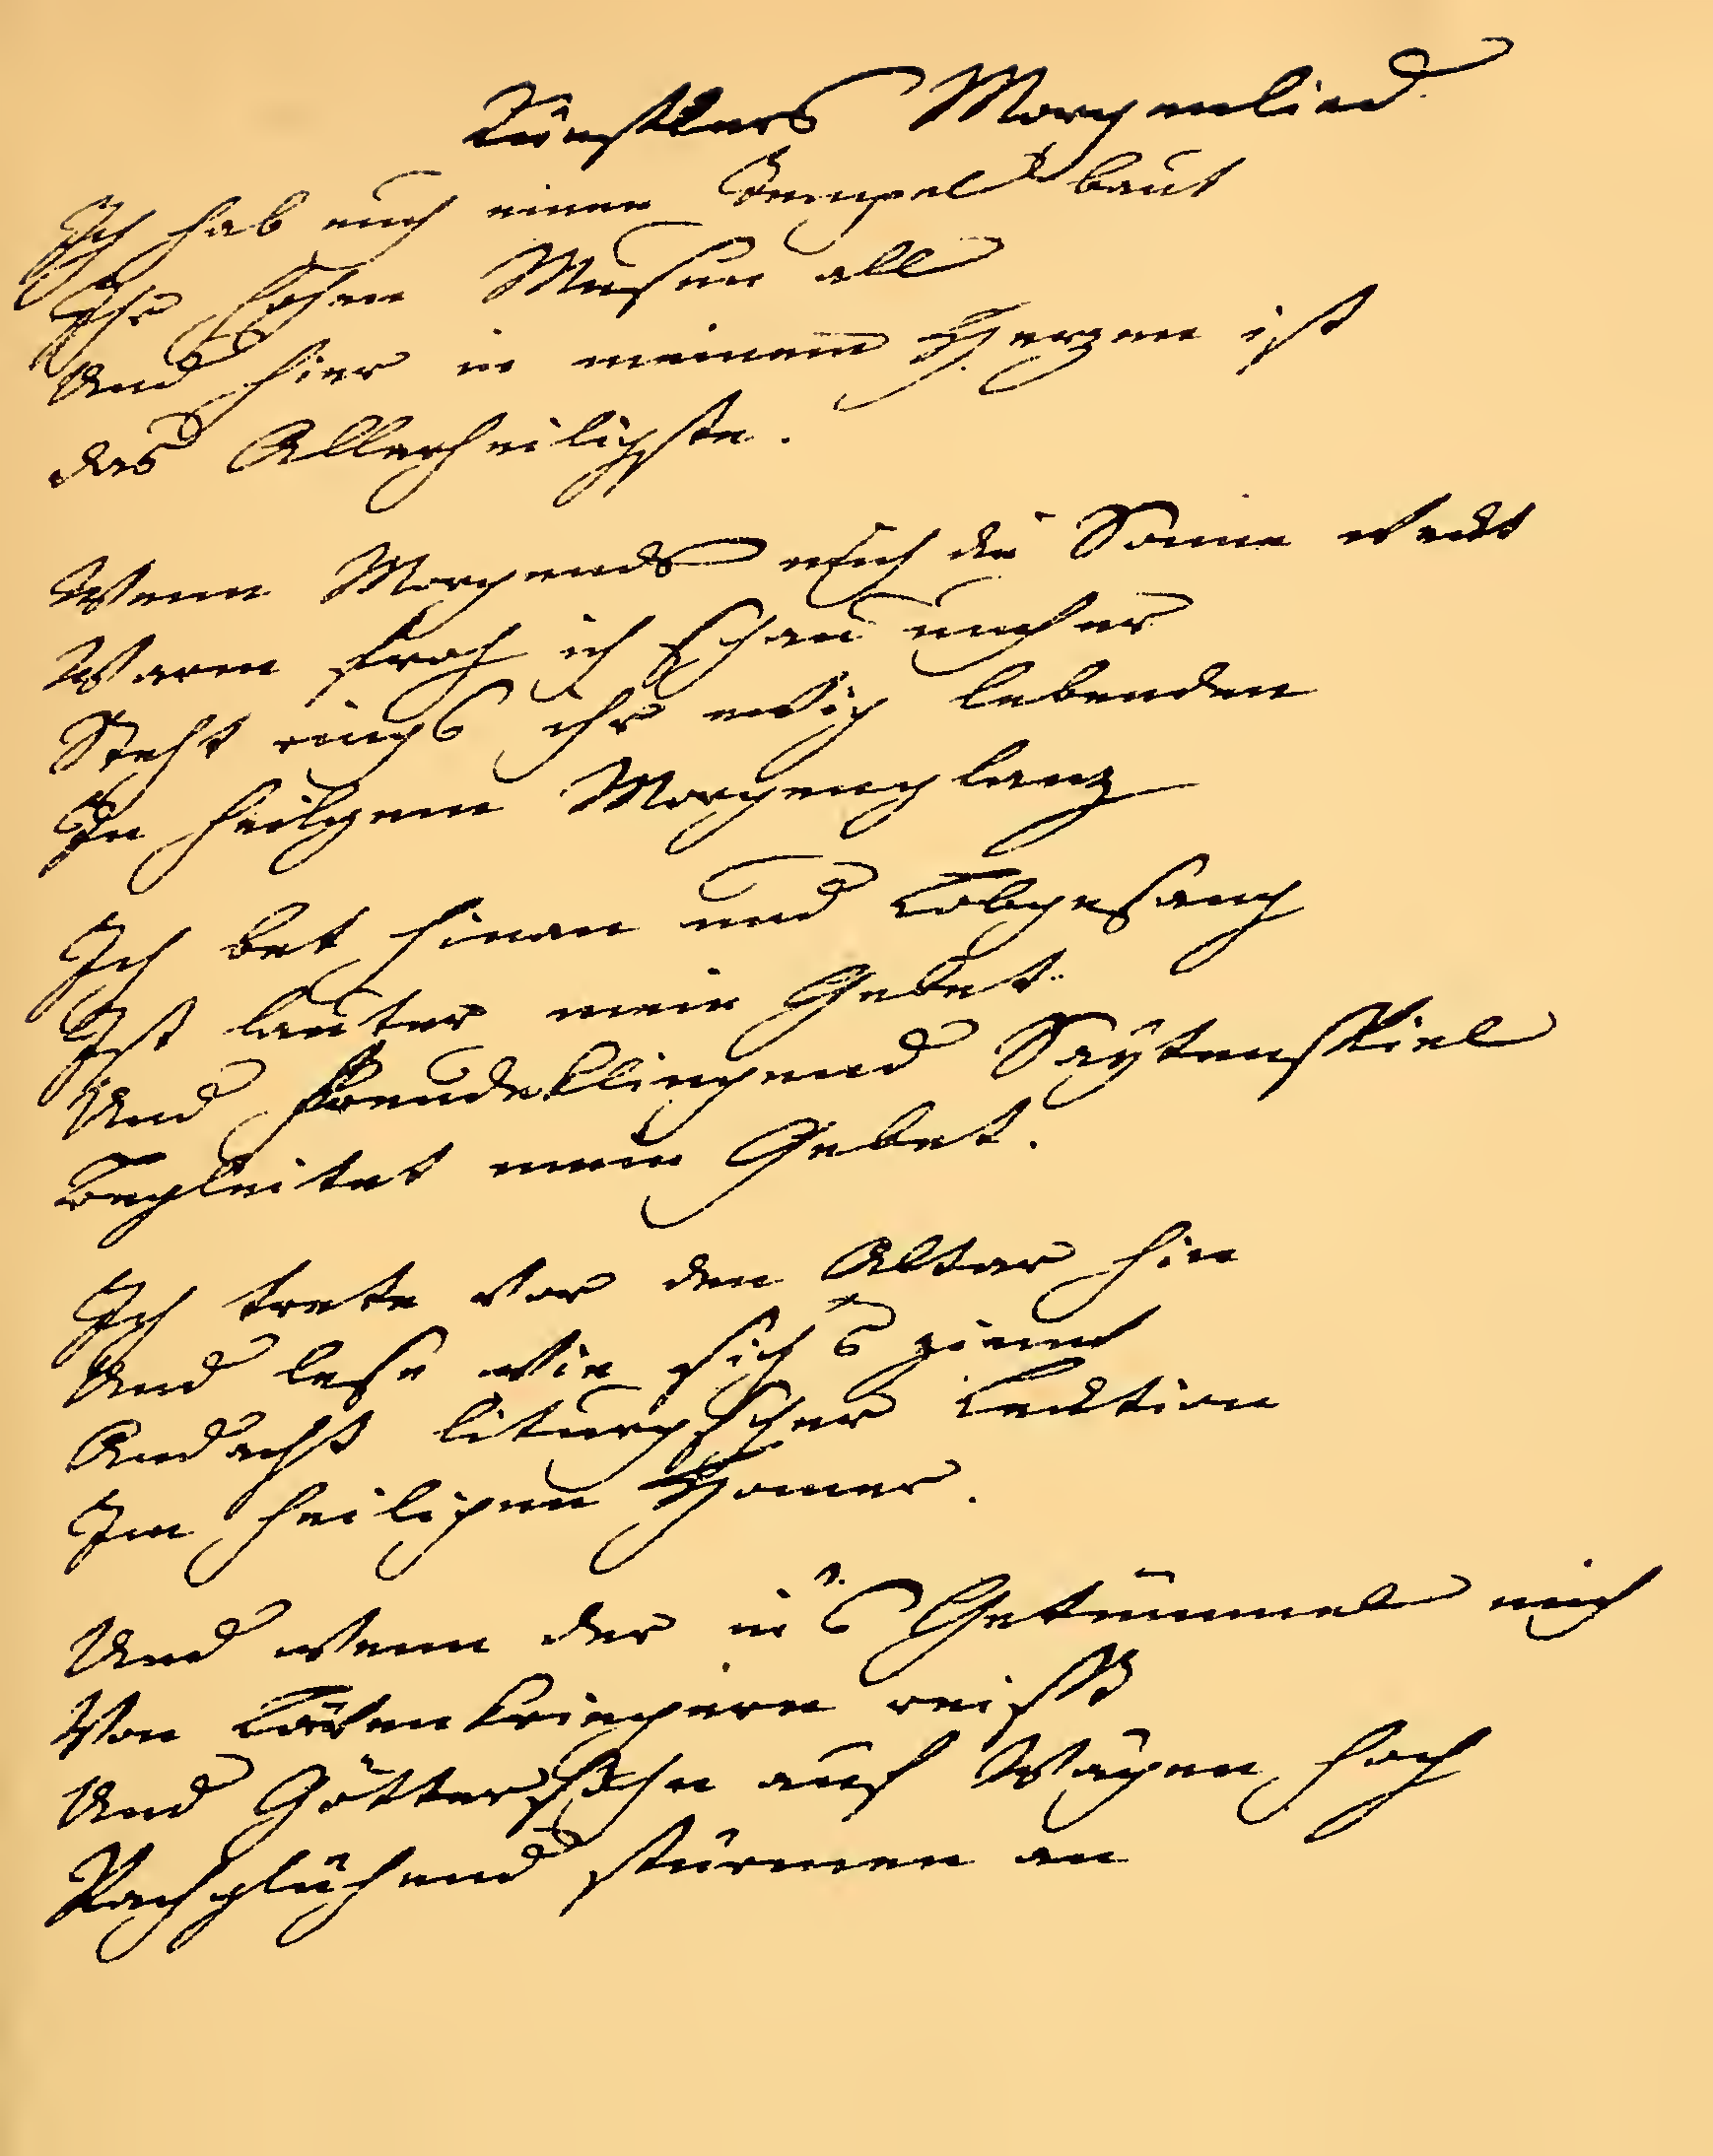 Künstlers Morgenlied
Ich hab euch einen Tempel baut
Ihr hohen Musen all
Und hier in meinem Herzen ist
das Allerheiligste.
Wenn Morgends mich die Sonne weckt
Warm froh ich schau umher
Steht rings ihr ewig lebenden
In heilgem Morgenglanz
Ich bet hinan und Lobgesang
Ist lauter mein Gebet
Und freudeklingend Saytenspiel
Begleitet mein Gebet.
Ich trete vor den Altar hin
Und lese wie sich's ziemt
Andacht liturgscher Lecktion
Im heiligen Homer.
Und wenn der in's Getümmel mich
Von Löwenkriegern reisst
Und Göttersöhn auf Wägen hoch
Rachglühend stürmen an